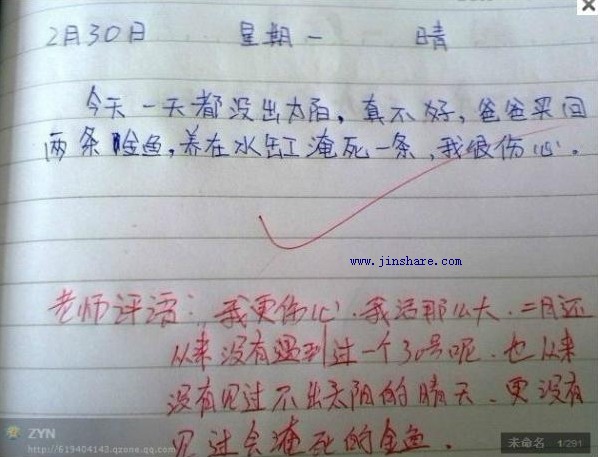 2月30日 星期一 晴
今天一天都没出太阳,真不好,爸爸买回
两条金鱼,养在水缸淹死一条,我很伤心。
www.jinshare.com
老师评语:我更伤心.我活那么大.二月还
从来没有遇到过一个30号呢.也从来
没有见过不出太阳的晴天.更没有
见过会淹死的金鱼.
ZYN
http://619404143.qzone.qq.com/
未命名 1/291